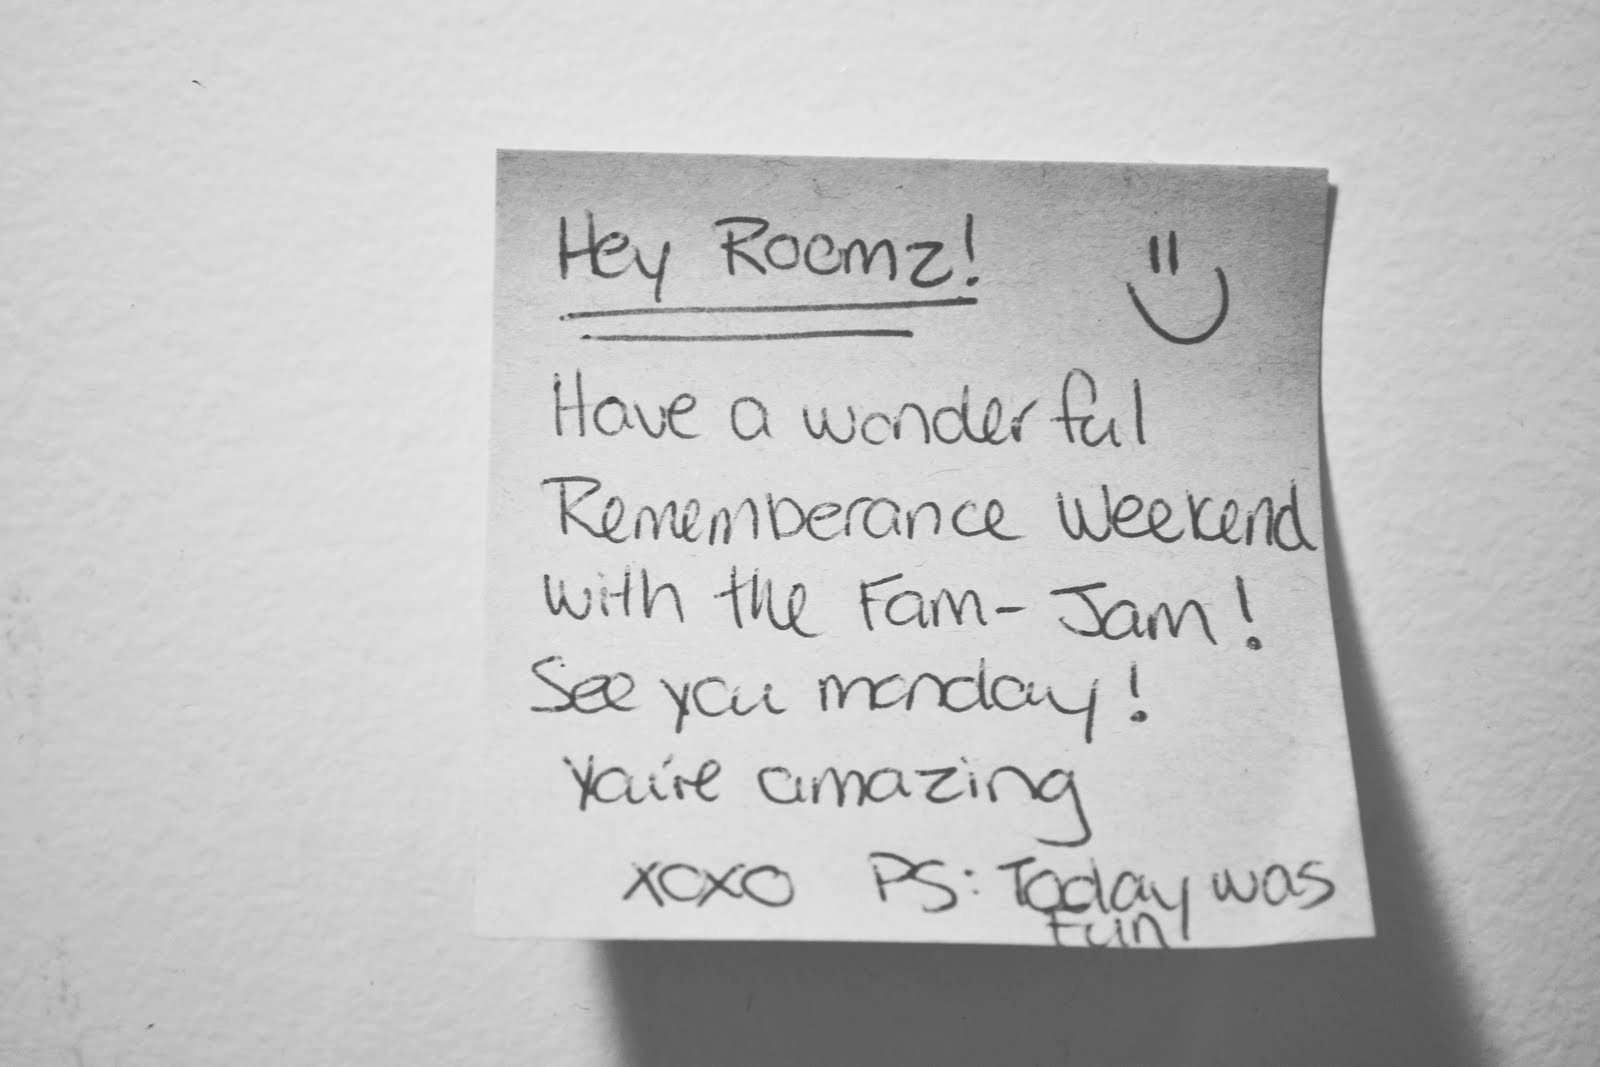 Hey Roomz!
Have a wonderful
Rememberance Weekend
with the Fam-Jam!
See you monday!
you're amazing
xoxo PS: Today was
Fun!